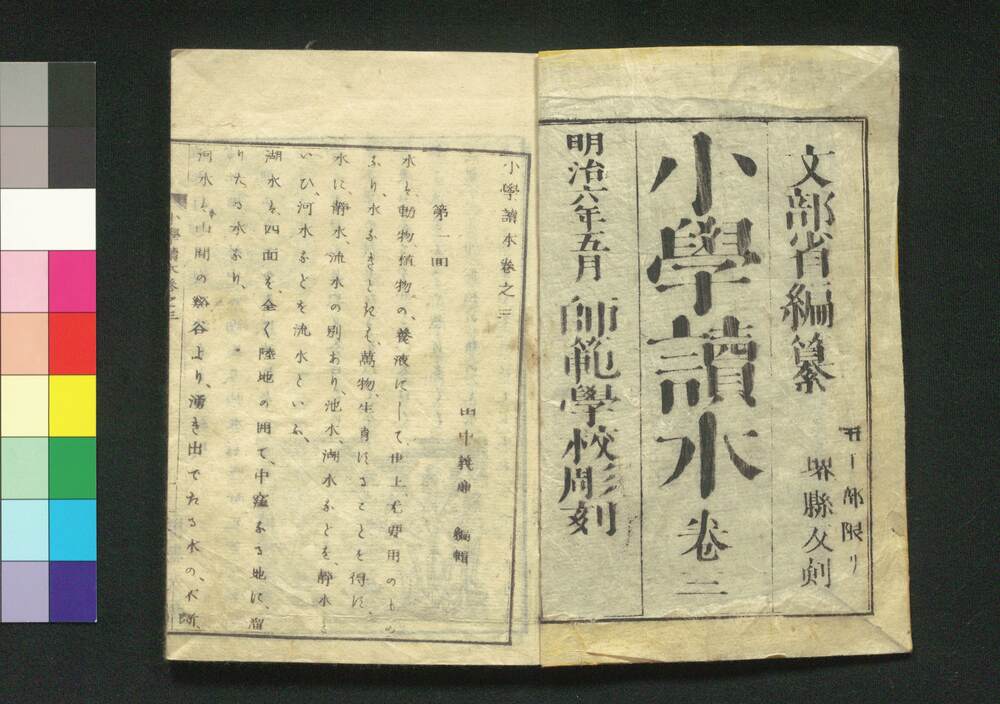 文部省編纂
堺縣反刻
部限リ
小學讀本
卷三
明治六年五月
師範學校彫刻
小學讀本卷之三
第一囘
田中義廉 編輯
水は、動物、植物の、養液にして世上、尤要用のもの
なり、水なきときは、萬物、生育することを得ず、
水に、静水、流水の別あり、池水、湖水などを、静水と
いひ、河水などを流水といふ、
湖水は、四面を、全く陸地の圍て、中窪なる地に、溜
りたる水なり、
河水は、山間の谿谷より、湧き出でたる水の、
小學讀本卷之三